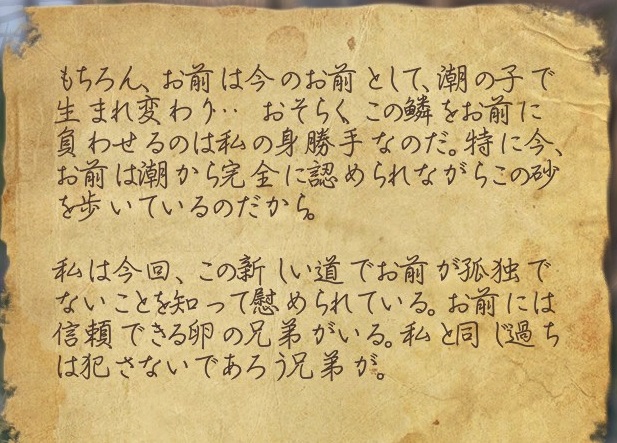 もちろん、お前は今のお前として、潮の子で
生まれ変わり‥ おそらく、この鱗をお前に
負わせるのは私の身勝手なのだ。特に今、
お前は潮から完全に認められながらこの砂
を歩いているのだから。
私は今回、この新しい道でお前が孤独で
ないことを知って慰められている。お前には
信頼できる卵の兄弟がいる。私と同じ過ち
は犯さないであろう兄弟が。